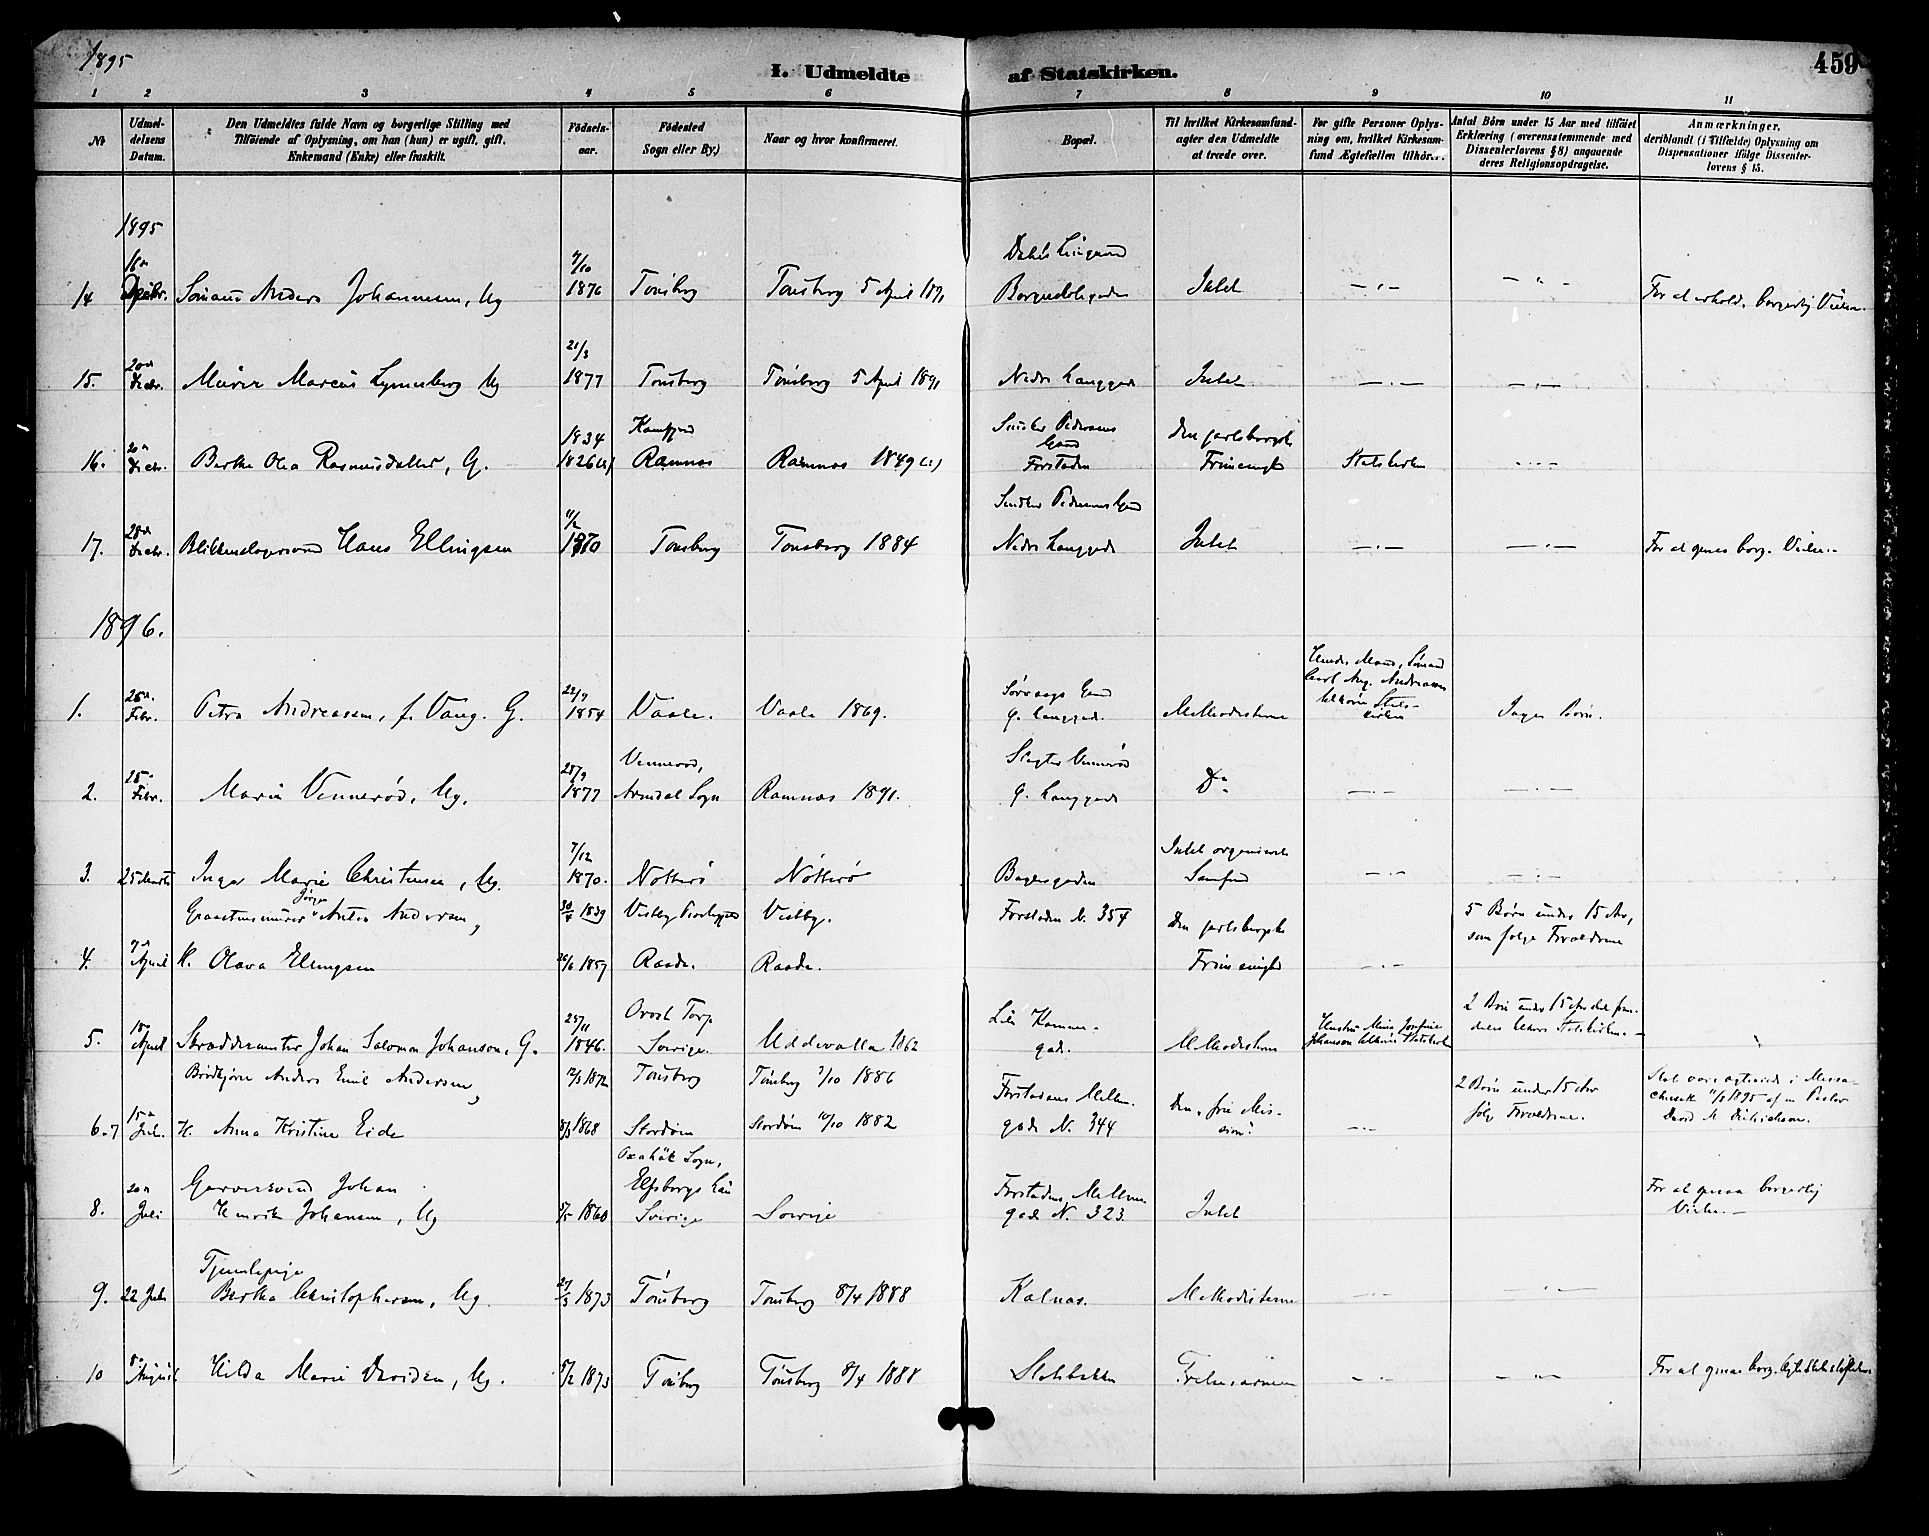 1895
I. Udmeldte af Statskirken.
459
1 2 3 4 5 6 7 8 9 10 11
No
Udmeldelsens Datum.
Den Udmeldtes fulde Navn og borgerlige Stilling med
Tilföiende af Oplysning, om han (hun) er ugift, gift,
Enkemand (Enke) eller fraskilt.
Födselsaar.
Födested
Sogn eller By.)
Naar og hvor konfirmeret.
Bopæl.
Til hvilket Kirkesamfund
agter den Udmeldte
at træde over.
For gifte Personer Oplysning om, hvilket Kirkesamfund Ægtefællen tilhörer.
Antal Börn under 15 Aar med tilföiet
Erklæring (overensstemmende med
Dissenterlovens § 8) angaaende
deres Religionsopdragelse.
Anmærkninger,
deriblandt (i Tilfælde) Oplysning om
Dispensationer ifölge Dissenterlovens § 15.
1895
14. 16 Decbr. Anders Johannesen, Ug 7/10 1876 Tönsberg Tönsberg 5 April 1891 Intet For at erhold. borgerlig Vielse.
15. 20 Decbr. Murer Marcus Lynnsberg Ug 21/3 1877 Tönsberg Tönsberg 5 April 1891 Nedre Langgade Intet
16. 20 Decbr. Berthe Olea Rasmusdatter, G. 1834 1826 Ramnæs Ramnæs 1849 Snedker Pedersens Gaard Forstaden Den jarlsbergske Frimenighed Statskirken
17. 28 Decbr. Blikkenslagersvend Hans Ellingsen 11/2 1870 Tönsberg Tönsberg 1884 Snedker Pedersens Gaard Nedre Langgade Intet For at opnaa borg. Vielse.
1896.
1. 25 Febr. Petra Andreassen, f. Vang. G. 22/9 1854 Vaale. Vaale 1869. Langgade. Methodisterne Hendes Mand, Sömand Carl Aug. Andreassen tilhörer Statskirken Ingen Börn.
2. 25 Febr. Maria Vennerød, Ug. 28/9 1877 Vennerød, Arendal Sogn Ramnæs 1891. Slagter Vennerød Langgade Do
3. 25 Marts Inger Marie Christensen, Ug. 7/12 1870. Nötterö Nötterö Bagergaden Intet organiseret Samfund
4. 7 April Graastensmurer Jörgen Anton Andersen, 30/4 1839 Visby. Forstaden N. 354 Den jarlsbergske Frimenighed 5 Börn under 15 Aar, som fölge Forældrene
H. Olava Ellingsen 26/6 1857 Raade. Raade.
5. 18 April Skræddermester Johan Salomon Johanson, G. 25/11 1846. Torp Sverige. Uddevalla 1862 Lille gade. Methodisterne Hustru Mina Josefine Johanson tilhörer Statskirken 2 Börn under 15 Aar
6-7 15 Juli. Brödkjörer Anders Emil Andersen, 12/3 1872 Tönsberg Tönsberg 3/10 1886 Forstadens Mellemgade N. 344 Den "frie Mission" 2 Börn under 15 Aar fölge Forældrene.
H. Anna Kristine Eide 8/3 1868 Stordöen Stordöen 10/10 1882
8. 20 Juli Garversvend Johan Henrik Johansen, Ug 1860 Sogn, Elfsborgs Län Sverige Sverige Forstadens Mellemgade N. 323. Intet For at opnaa borgerlig Vielse.
9. 22 Juli Tjenestepige Bertha Christophersen, Ug. 27/3 1873 Tönsberg Tönsberg 8/4 1888 Kalnæs. Methodisterne
10 8 August Hilda Marie Davidsen, Ug. 8/2 1873 Tönsberg Tönsberg 8/4 1888 Stokbakken Frelsesarmeen